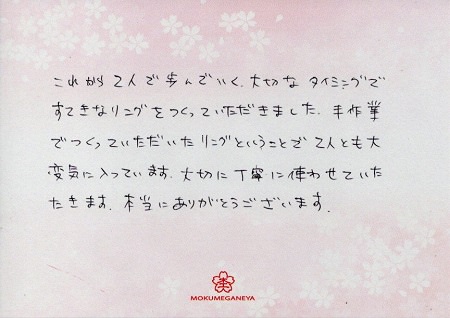 これから2人で歩んでいく、大切な タイミングで
すてきなリングをつくっていただきました。手作業
でつくっていただいた リングということで 2人とも大
変気に入っています。大切に丁寧に使わせていた
だきます。本当にありがとうございます。
MOKUMEGANEYA